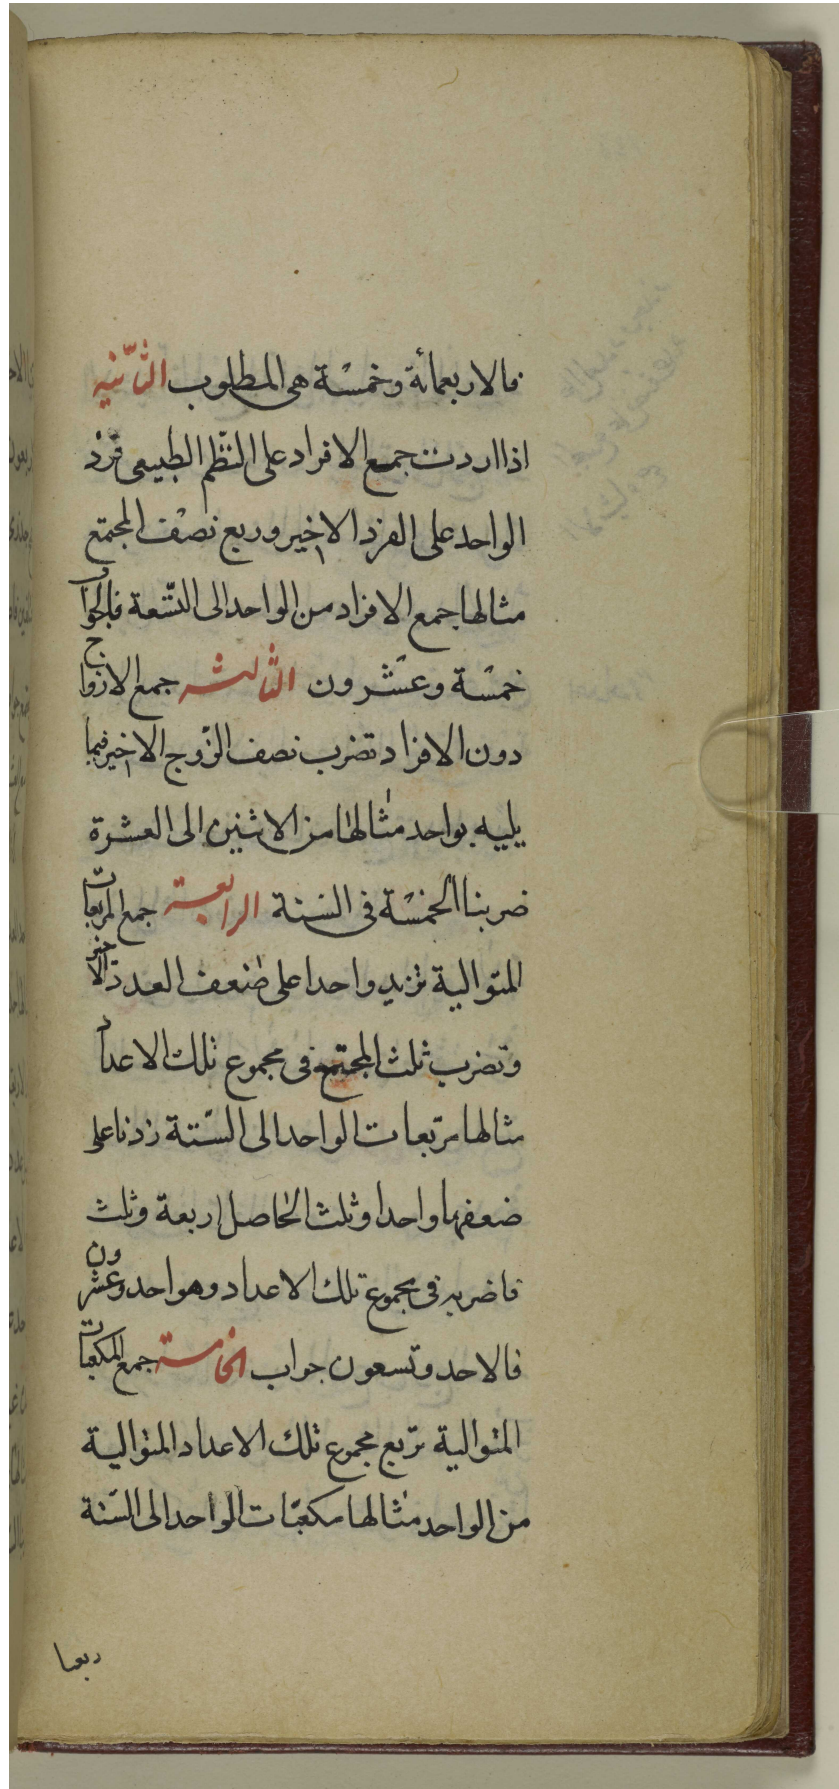 فالاربعمائة وخمسة هى المطلوب الثانيه
اذا اردت جمع الافراد على النظم الطبيعى فزد
الواحد على الفرد الاخير وربع نصف المجتمع
مثالها جمع الافراد من الواحد الى التسعة فالجواب
خمسة وعشرون الثالثه جمع الازواج
دون الافراد تضرب نصف الزوج الاخير فيما
يليه بواحد مثالها من الاثنين الى العشرة
ضربنا الخمسة فى الستة الرابعة جمع المربعات
المتوالية تزيد واحدا على ضعف العدد الاخير
وتضرب ثلث المجتمع فى مجموع تلك الاعداد
مثالها مربعات الواحد الى الستة زدنا على
ضعفها واحدا وثلث الحاصل اربعة وثلث
فاضربه فى مجموع تلك الاعداد وهو احد وعشرون
فالاحد وتسعون جواب الخامسة جمع المكعبات
المتوالية تربع مجموع تلك الاعداد المتوالية
من الواحد مثالها مكعبات الواحد الى الستة
ربعنا